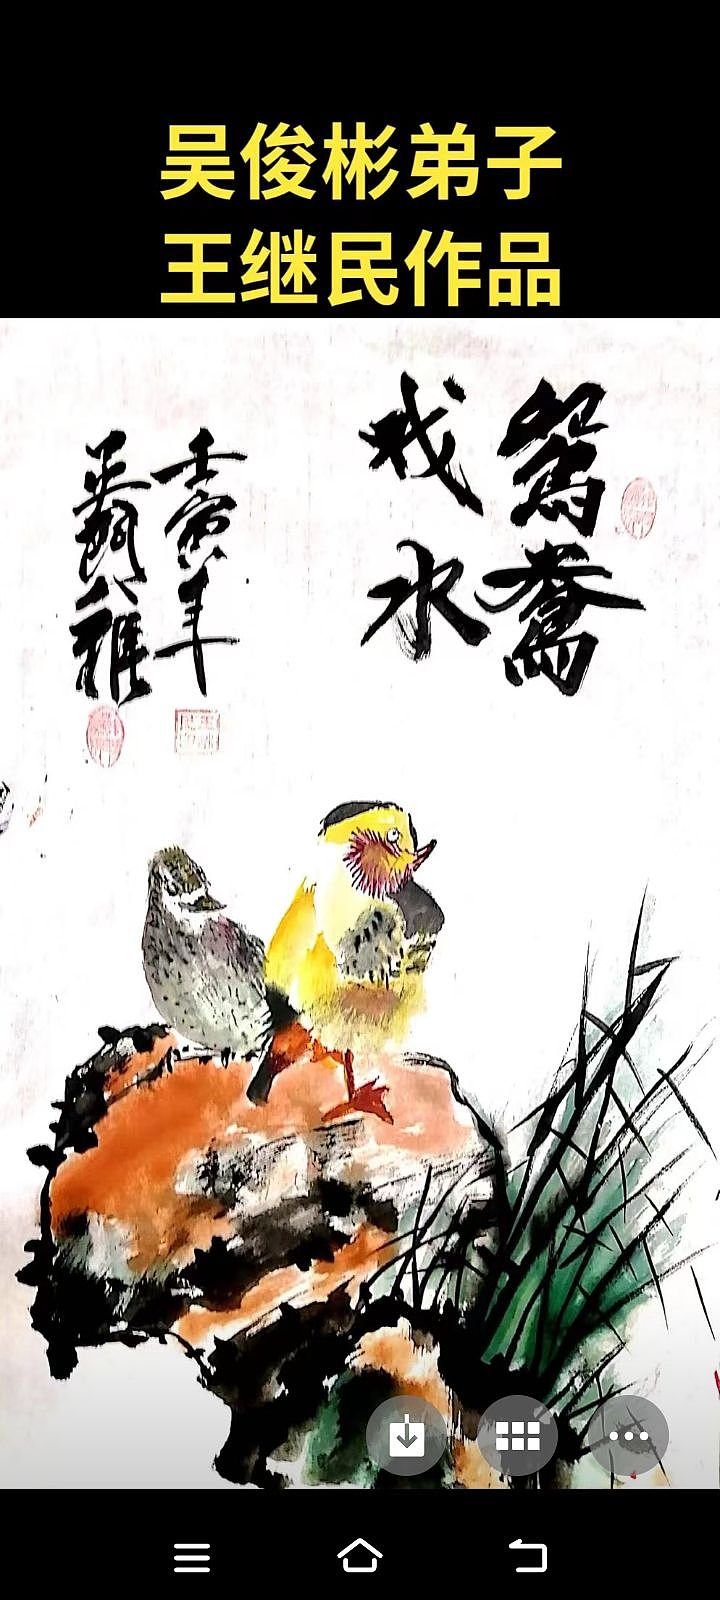 吴俊彬弟子
王继民作品
鸳鸯
戏水
壬寅年